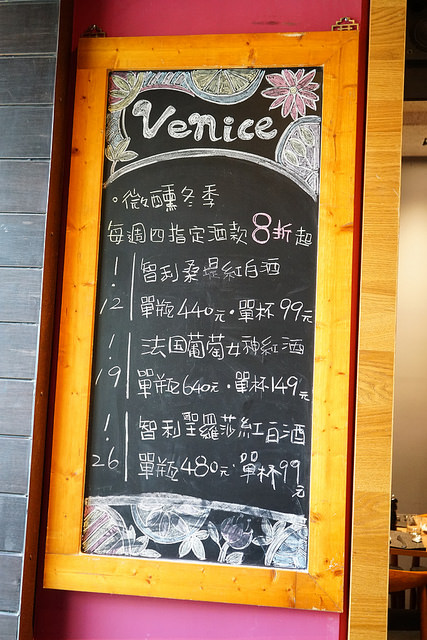 Venice
。微醺冬季
每週四指定酒款8折起
! 智利桑堤紅白酒
12 單瓶440元·單杯99元
! 法国葡萄女神紅酒
19 單瓶640元·單杯149元
! 智利聖羅莎紅白酒
26 單瓶480元·單杯99元